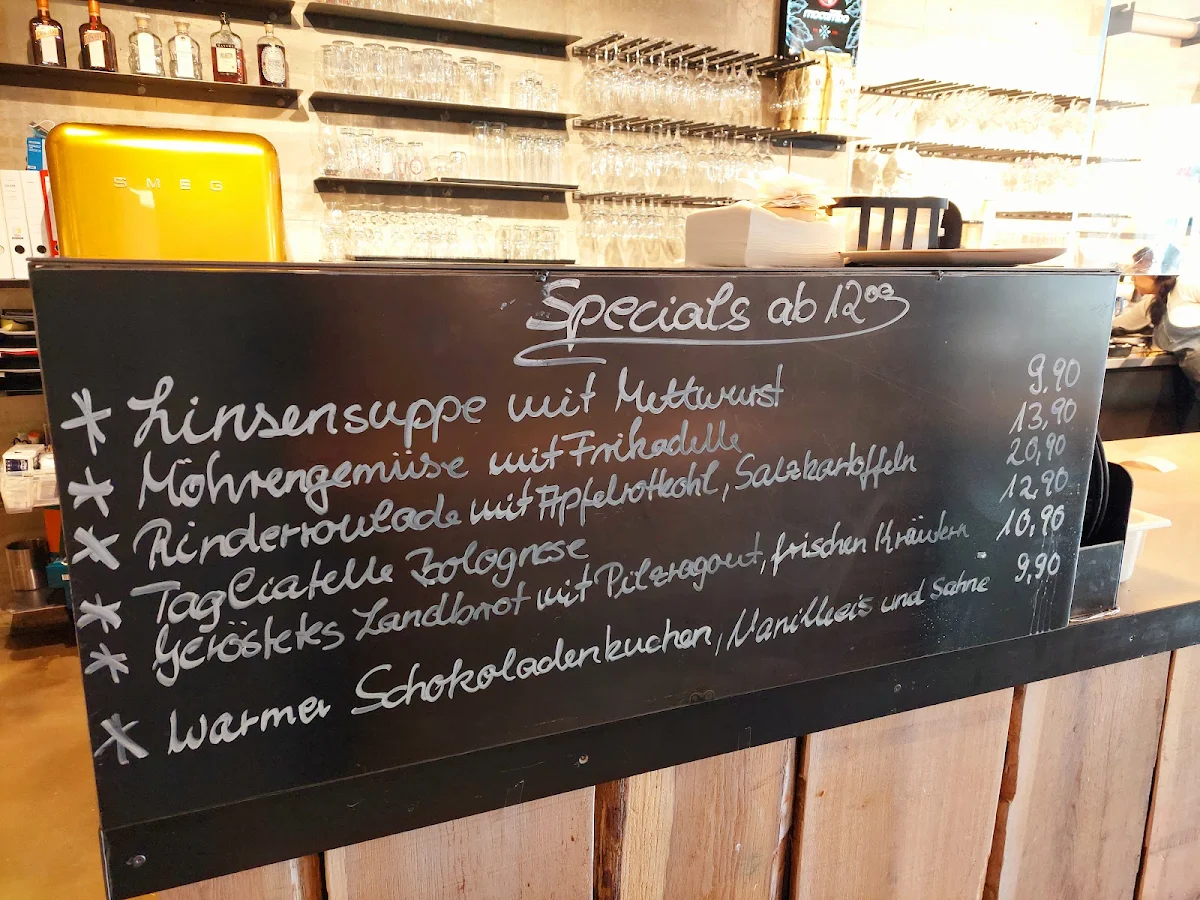 mocambo
SMEG
Specials ab 12⁰⁰
* Linsensuppe mit Mettwurst 9,90
* Möhrengemüse mit Frikadelle 13,90
* Rinderroulade mit Apfelrotkohl, Salzkartoffeln 20,90
* Tagliatelle Bolognese 12,90
* Geröstetes Landbrot mit Pilzragout, frischen Kräutern 10,90
* Warmer Schokoladenkuchen, Vanilleeis und Sahne 9,90